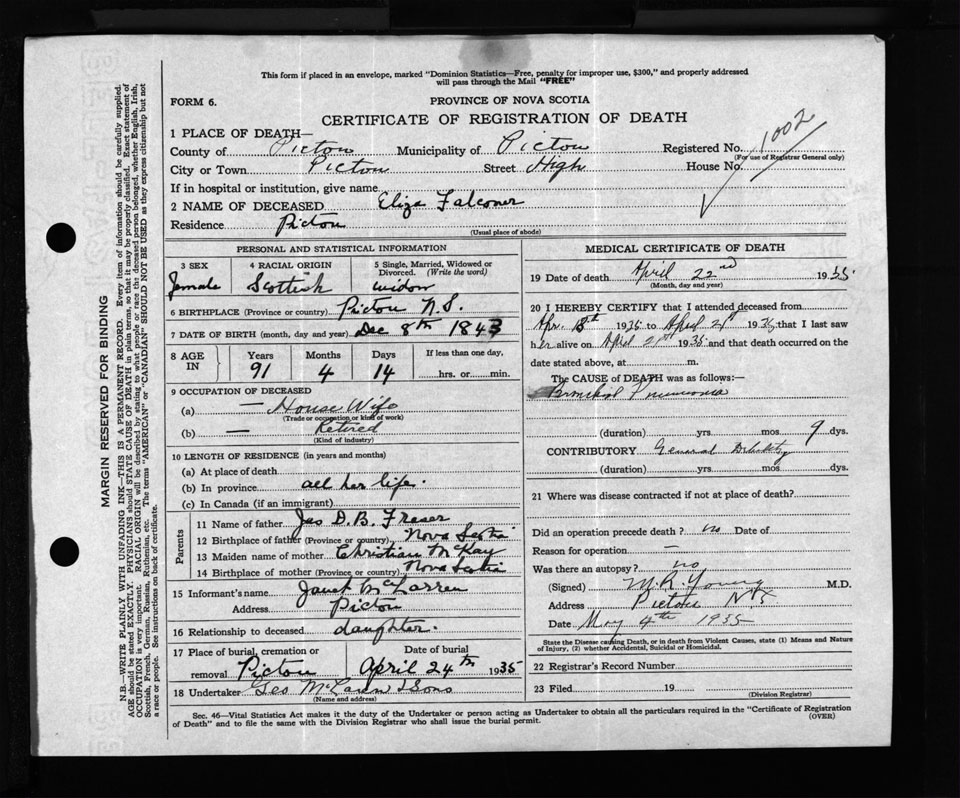 This form if placed in an envelope, marked "Dominion Statistics—Free, penalty for improper use, $300," and properly addressed
will pass through the Mail "FREE"
FORM 6.
PROVINCE OF NOVA SCOTIA
CERTIFICATE OF REGISTRATION OF DEATH
1 PLACE OF DEATH—
County of Pictou Municipality of Pictou Registered No. 1002
(For use of Registrar General only)
City or Town Pictou Street High House No.
If in hospital or institution, give name
2 NAME OF DECEASED Eliza Falconer
Residence Pictou
(Usual place of abode)
PERSONAL AND STATISTICAL INFORMATION
3 SEX 4 RACIAL ORIGIN 5 Single, Married, Widowed or
Divorced. (Write the word)
Female Scottish widow
6 BIRTHPLACE (Province or country) Pictou N.S.
7 DATE OF BIRTH (month, day and year) Dec 8th 1843
8 AGE IN Years Months Days If less than one day,
91 4 14 hrs. or min.
9 OCCUPATION OF DECEASED
(a) — House Wife
(Trade or occupation or kind of work)
(b) — Retired
(Kind of industry)
10 LENGTH OF RESIDENCE (in years and months)
(a) At place of death
(b) In province all her life.
(c) In Canada (if an immigrant)
Parents
11 Name of father Jas D. B. Fraser
12 Birthplace of father (Province or country) Nova Scotia
13 Maiden name of mother Christian McKay
14 Birthplace of mother (Province or country) Nova Scotia
15 Informant's name Janet McLarren
Address Pictou
16 Relationship to deceased daughter.
17 Place of burial, cremation or Date of burial
removal Pictou April 24th 1935
18 Undertaker Geo McLaren & Sons
(Name and address)
MEDICAL CERTIFICATE OF DEATH
19 Date of death April 22nd 1935.
(Month, day and year)
20 I HEREBY CERTIFY that I attended deceased from
Apr. 13th 1935 to April 21st 1935 that I last saw
her alive on April 21st 1935 and that death occurred on the
date stated above, at m.
The CAUSE of DEATH was as follows:—
Bronchial Pneumonia
(duration) yrs. mos. 9 dys.
CONTRIBUTORY General Debility
(duration) yrs. mos. dys.
21 Where was disease contracted if not at place of death?
Did an operation precede death? no Date of
Reason for operation —
Was there an autopsy? no
(Signed) M.R. Young M.D.
Address Pictou N.S
Date May 4th 1935
State the Disease causing Death, or in death from Violent Causes, state (1) Means and Nature
of Injury, (2) whether Accidental, Suicidal or Homicidal.
22 Registrar's Record Number
23 Filed 19
(Division Registrar)
Sec. 46—Vital Statistics Act makes it the duty of the Undertaker or person acting as Undertaker to obtain all the particulars required in the "Certificate of Registration
of Death" and to file the same with the Division Registrar who shall issue the burial permit. (OVER)
MARGIN RESERVED FOR BINDING
N.B.—WRITE PLAINLY WITH UNFADING INK—THIS IS A PERMANENT RECORD. Every item of information should be carefully supplied.
AGE should be stated EXACTLY. PHYSICIANS should STATE CAUSE OF DEATH in plain terms, so that it may be properly classified. Exact statement of
OCCUPATION is very important. RACIAL ORIGIN will be described by stating to what people or race the deceased person belonged, whether English, Irish,
Scottish, French, German, Russian, Ruthenian, etc. The terms "AMERICAN" or "CANADIAN" SHOULD NOT BE USED as they express citizenship but not
a race or people. See instructions on back of certificate.